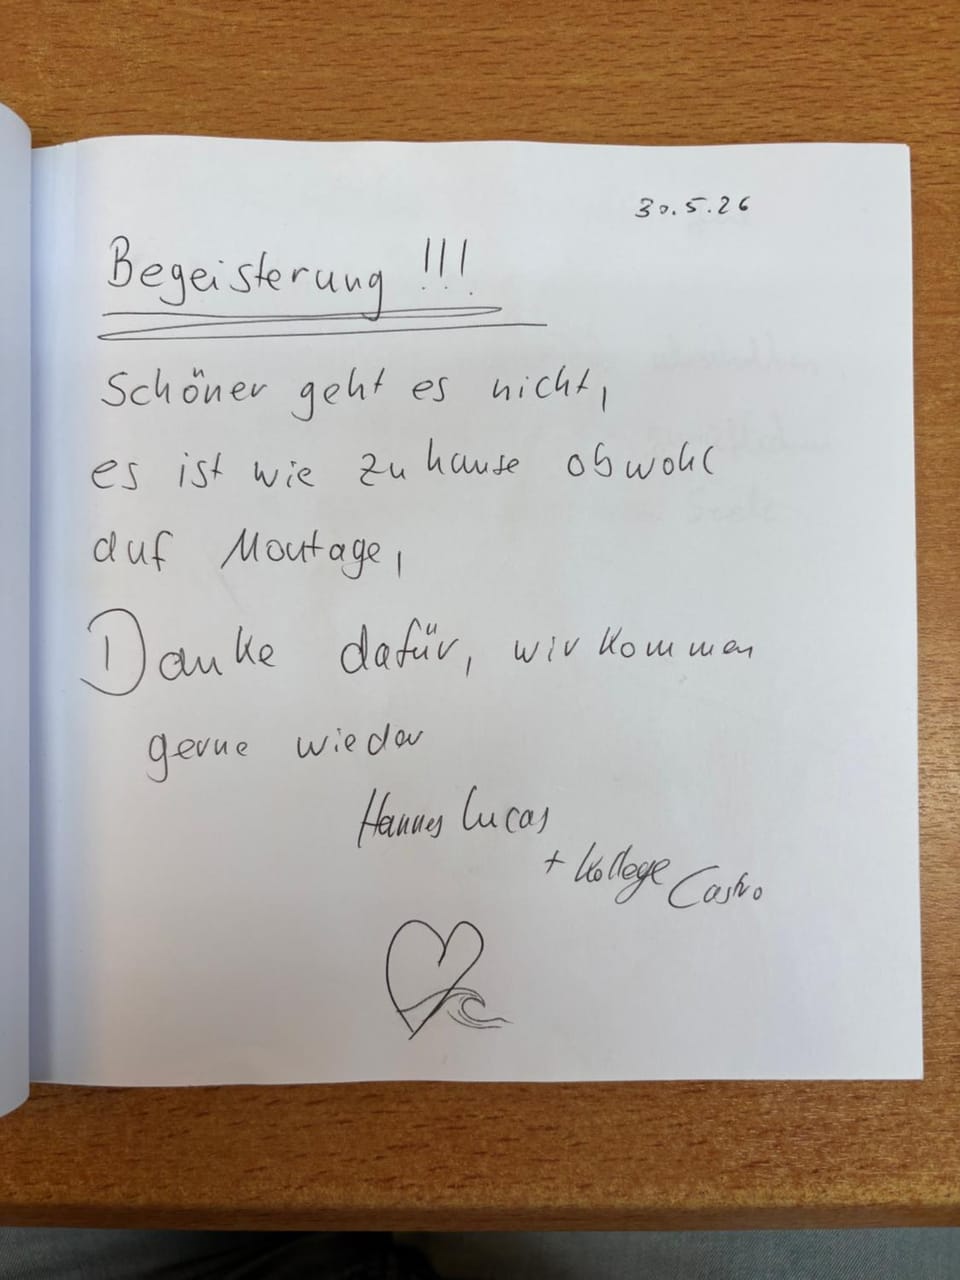 30.5.26
Begeisterung !!!
Schöner geht es nicht,
es ist wie zu hause obwohl
auf Montage,
Danke dafür, wir kommen
gerne wieder
Hannes Lucas
+ Kollege Castro